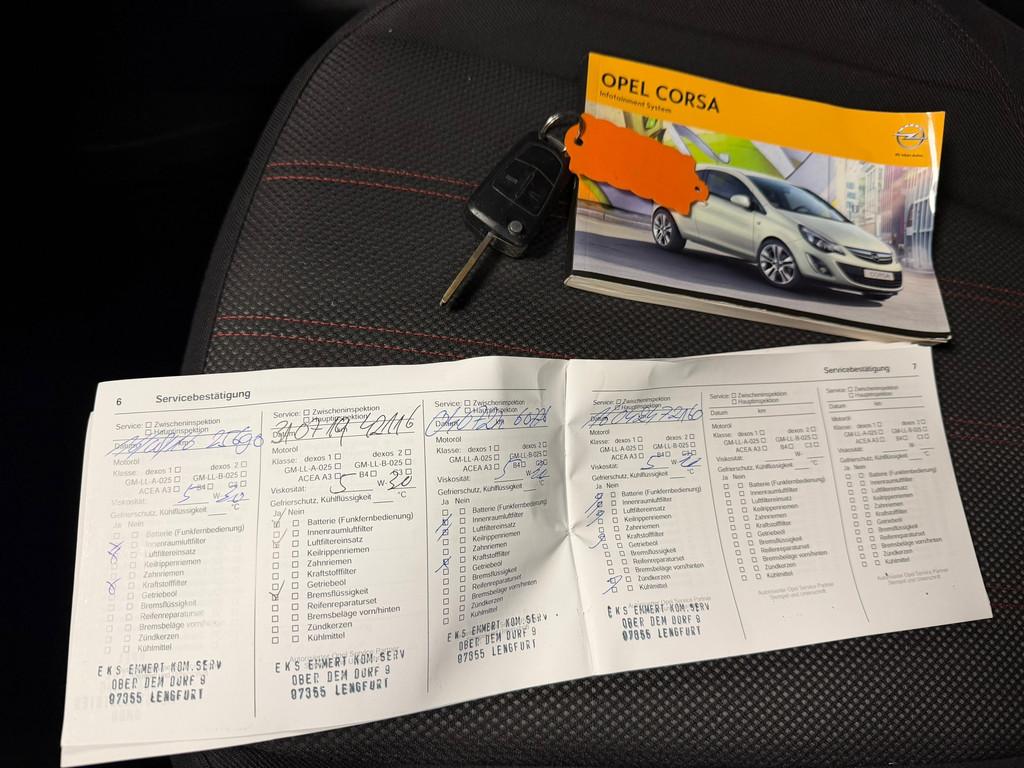 OPEL CORSA
Infotainment System
CORSA
6 Servicebestätigung
Service: Zwischeninspektion
Hauptinspektion
Motoröl
Klasse: dexos 1 dexos 2
GM-LL-A-025 GM-LL-B-025
ACEA A3 B4 C3
Viskosität: 5 W-30
Gefrierschutz, Kühlflüssigkeit °C
Ja Nein
Innenraumluftfilter
Luftfiltereinsatz
Keilrippenriemen
Zahnriemen
Kraftstofffilter
Getriebeöl
Bremsflüssigkeit
Reifenreparaturset
Bremsbeläge vorn/hinten
Zündkerzen
Kühlmittel
EKS EHMERT KOM.SERV
OBER DEM DORF 9
97855 LENGFURT
Service: Zwischeninspektion
Hauptinspektion
Datum 42116
Motoröl
Klasse: dexos 1 dexos 2
GM-LL-A-025 GM-LL-B-025
ACEA A3 B4 C3
Viskosität: 5 W-30
Gefrierschutz, Kühlflüssigkeit °C
Ja Nein
Batterie (Funkfernbedienung)
Innenraumluftfilter
Luftfiltereinsatz
Keilrippenriemen
Zahnriemen
Kraftstofffilter
Getriebeöl
Bremsflüssigkeit
Reifenreparaturset
Bremsbeläge vorn/hinten
Zündkerzen
Kühlmittel
EKS EHMERT KOM.SERV
OBER DEM DORF 9
97855 LENGFURT
Service: Zwischeninspektion
Hauptinspektion
Motoröl
Klasse: dexos 1 dexos 2
GM-LL-A-025 GM-LL-B-025
ACEA A3 B4
Viskosität: 5 W-
Gefrierschutz, Kühlflüssigkeit °C
Ja Nein
Batterie (Funkfernbedienung)
Innenraumluftfilter
Luftfiltereinsatz
Keilrippenriemen
Zahnriemen
Kraftstofffilter
Getriebeöl
Bremsflüssigkeit
Reifenreparaturset
Bremsbeläge vorn/hinten
Zündkerzen
Kühlmittel
EKS EHMERT KOM.SERV
OBER DEM DORF 9
97855 LENGFURT
Servicebestätigung 7
Service: Zwischeninspektion
Hauptinspektion
72160
Motoröl
Klasse: dexos 1 dexos 2
GM-LL-A-025 GM-LL-B-025
ACEA A3 B4 C3
Viskosität: 5 W-
Gefrierschutz, Kühlflüssigkeit °C
Ja Nein
Batterie (Funkfernbedienung)
Innenraumluftfilter
Luftfiltereinsatz
Keilrippenriemen
Zahnriemen
Kraftstofffilter
Getriebeöl
Bremsflüssigkeit
Reifenreparaturset
Bremsbeläge vorn/hinten
Zündkerzen
Kühlmittel
EKS EHMERT KOM.SERV
OBER DEM DORF 9
97855 LENGFURT
Service: Zwischeninspektion
Hauptinspektion
Datum km
Motoröl
Klasse: dexos 1 dexos 2
GM-LL-A-025 GM-LL-B-025
ACEA A3 B4 C3
Viskosität: W-
Gefrierschutz, Kühlflüssigkeit °C
Ja Nein
Batterie (Funkfernbedienung)
Innenraumluftfilter
Luftfiltereinsatz
Keilrippenriemen
Zahnriemen
Kraftstofffilter
Getriebeöl
Bremsflüssigkeit
Reifenreparaturset
Bremsbeläge vorn/hinten
Zündkerzen
Kühlmittel
Autorisierter Opel Service Partner
Stempel und Unterschrift
Service: Zwischeninspektion
Hauptinspektion
Datum km
Motoröl
Klasse: dexos 1 dexos 2
GM-LL-A-025 GM-LL-B-025
ACEA A3 B4 C3
Viskosität: W-
Gefrierschutz, Kühlflüssigkeit °C
Ja Nein
Batterie (Funkfernbedienung)
Innenraumluftfilter
Luftfiltereinsatz
Keilrippenriemen
Zahnriemen
Kraftstofffilter
Getriebeöl
Bremsflüssigkeit
Reifenreparaturset
Bremsbeläge vorn/hinten
Zündkerzen
Kühlmittel
Autorisierter Opel Service Partner
Stempel und Unterschrift